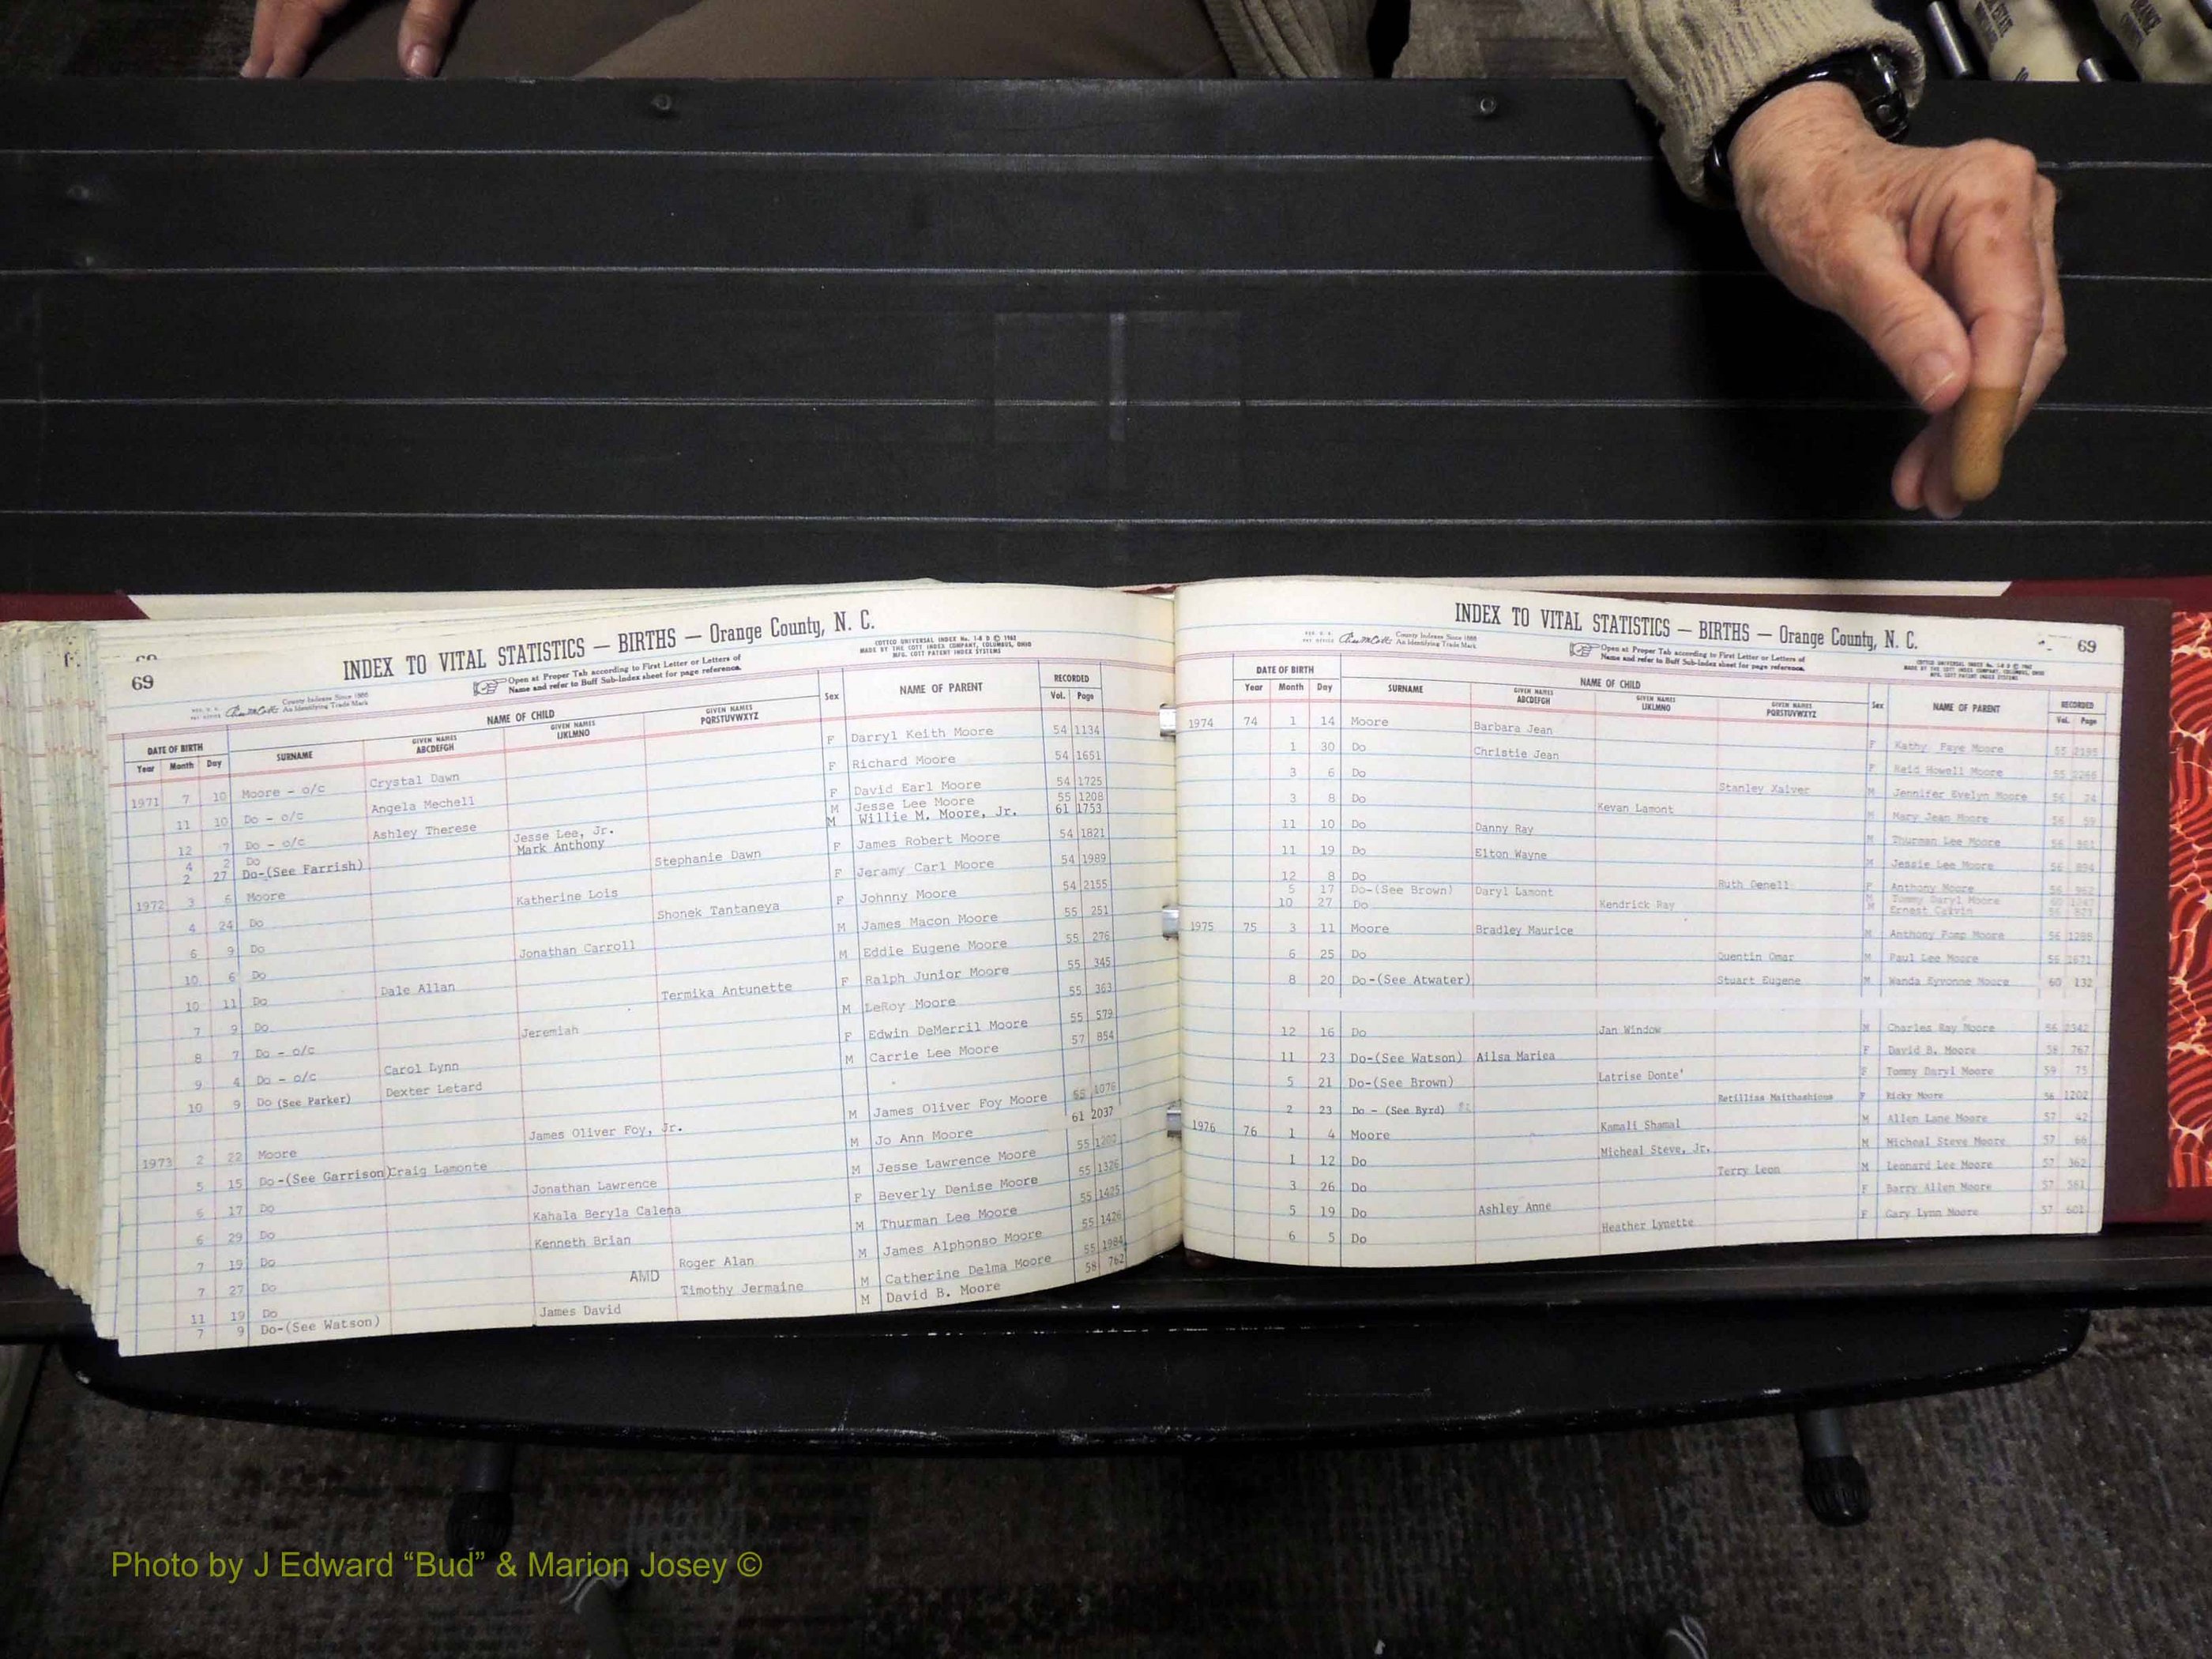 69
INDEX TO VITAL STATISTICS — BIRTHS — Orange County, N. C.
COTTCO UNIVERSAL INDEX No. 1-8 D © 1962
MADE BY THE COTT INDEX COMPANY, COLUMBUS, OHIO
MFG. COTT PATENT INDEX SYSTEMS
County Indexes Since 1888
An Identifying Trade Mark
Open at Proper Tab according to First Letter or Letters of
Name and refer to Buff Sub-Index sheet for page reference.
DATE OF BIRTH NAME OF CHILD Sex NAME OF PARENT RECORDED
Year Month Day SURNAME GIVEN NAMES ABCDEFGH GIVEN NAMES IJKLMNO GIVEN NAMES PQRSTUVWXYZ Vol. Page
1971 7 10 Moore - o/c Crystal Dawn F Darryl Keith Moore 54 1134
11 10 Do - o/c Angela Mechell F Richard Moore 54 1651
12 7 Do - o/c Ashley Therese F David Earl Moore 54 1725
4 2 Do Jesse Lee, Jr. M Jesse Lee Moore 55 1208
2 27 Do-(See Farrish) Mark Anthony M Willie M. Moore, Jr. 61 1753
1972 3 6 Moore Stephanie Dawn F James Robert Moore 54 1821
4 24 Do Katherine Lois F Jeramy Carl Moore 54 1989
6 9 Do Shonek Tantaneya F Johnny Moore 54 2155
10 6 Do Jonathan Carroll M James Macon Moore 55 251
10 11 Do Dale Allan M Eddie Eugene Moore 55 276
7 9 Do Termika Antunette F Ralph Junior Moore 55 345
8 7 Do - o/c Jeremiah M LeRoy Moore 55 363
9 4 Do - o/c Carol Lynn F Edwin DeMerril Moore 55 579
10 9 Do (See Parker) Dexter Letard M Carrie Lee Moore 57 854
1973 2 22 Moore James Oliver Foy, Jr. M James Oliver Foy Moore 55 1076
5 15 Do-(See Garrison) Craig Lamonte M Jo Ann Moore 61 2037
6 17 Do Jonathan Lawrence M Jesse Lawrence Moore 55
6 29 Do Kahala Beryla Calena F Beverly Denise Moore 55 1326
7 19 Do Kenneth Brian M Thurman Lee Moore 55 1425
7 27 Do Roger Alan M James Alphonso Moore 55 1426
11 19 Do AMD Timothy Jermaine M Catherine Delma Moore 55 1984
7 9 Do-(See Watson) James David M David B. Moore 58 762
INDEX TO VITAL STATISTICS — BIRTHS — Orange County, N. C.
69
County Indexes Since 1888
An Identifying Trade Mark
Open at Proper Tab according to First Letter or Letters of
Name and refer to Buff Sub-Index sheet for page reference.
DATE OF BIRTH NAME OF CHILD Sex NAME OF PARENT RECORDED
Year Month Day SURNAME GIVEN NAMES ABCDEFGH GIVEN NAMES IJKLMNO GIVEN NAMES PQRSTUVWXYZ Vol. Page
1974 74 1 14 Moore Barbara Jean F Kathy Faye Moore 55 2195
1 30 Do Christie Jean F Reid Howell Moore 55 2266
3 6 Do Stanley Xaiver M Jennifer Evelyn Moore 56 24
3 8 Do Kevan Lamont M Mary Jean Moore 56 59
11 10 Do Danny Ray M Thurman Lee Moore 56
11 19 Do Elton Wayne M Jessie Lee Moore 56 894
12 8 Do Ruth Denell F Anthony Moore 56 962
5 17 Do-(See Brown) Daryl Lamont M Tommy Daryl Moore 60
10 27 Do Kendrick Ray M Ernest Calvin 56
1975 75 3 11 Moore Bradley Maurice M Anthony Pomp Moore 56
6 25 Do Quentin Omar M Paul Lee Moore 56 1671
8 20 Do-(See Atwater) Stuart Eugene M Wanda Eyvonne Moore 60 132
12 16 Do Jan Window M Charles Ray Moore 56 2342
11 23 Do-(See Watson) Ailsa Mariea F David B. Moore 58 767
5 21 Do-(See Brown) Latrise Donte' F Tommy Daryl Moore 59 75
2 23 Do - (See Byrd) Retillias Maithashious F Ricky Moore 56 1202
1976 76 1 4 Moore Kamali Shamal M Allen Lane Moore 57 42
1 12 Do Micheal Steve, Jr. M Micheal Steve Moore 57 66
3 26 Do Terry Leon M Leonard Lee Moore 57 362
5 19 Do Ashley Anne F Barry Allen Moore 57 561
6 5 Do Heather Lynette F Gary Lynn Moore 57 601
Photo by J Edward “Bud” & Marion Josey ©